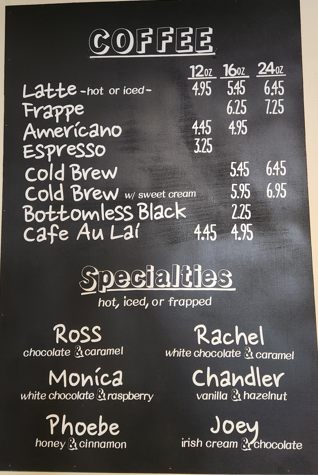 COFFEE
12oz 16oz 24oz
Latte -hot or iced- 4.95 5.45 6.45
Frappe 6.25 7.25
Americano 4.45 4.95
Espresso 3.25
Cold Brew 5.45 6.45
Cold Brew w/ sweet cream 5.95 6.95
Bottomless Black 2.25
Cafe Au Lai 4.45 4.95
Specialties
hot, iced, or frapped
Ross Rachel
chocolate & caramel white chocolate & caramel
Monica Chandler
white chocolate & raspberry vanilla & hazelnut
Phoebe Joey
honey & cinnamon irish cream & chocolate